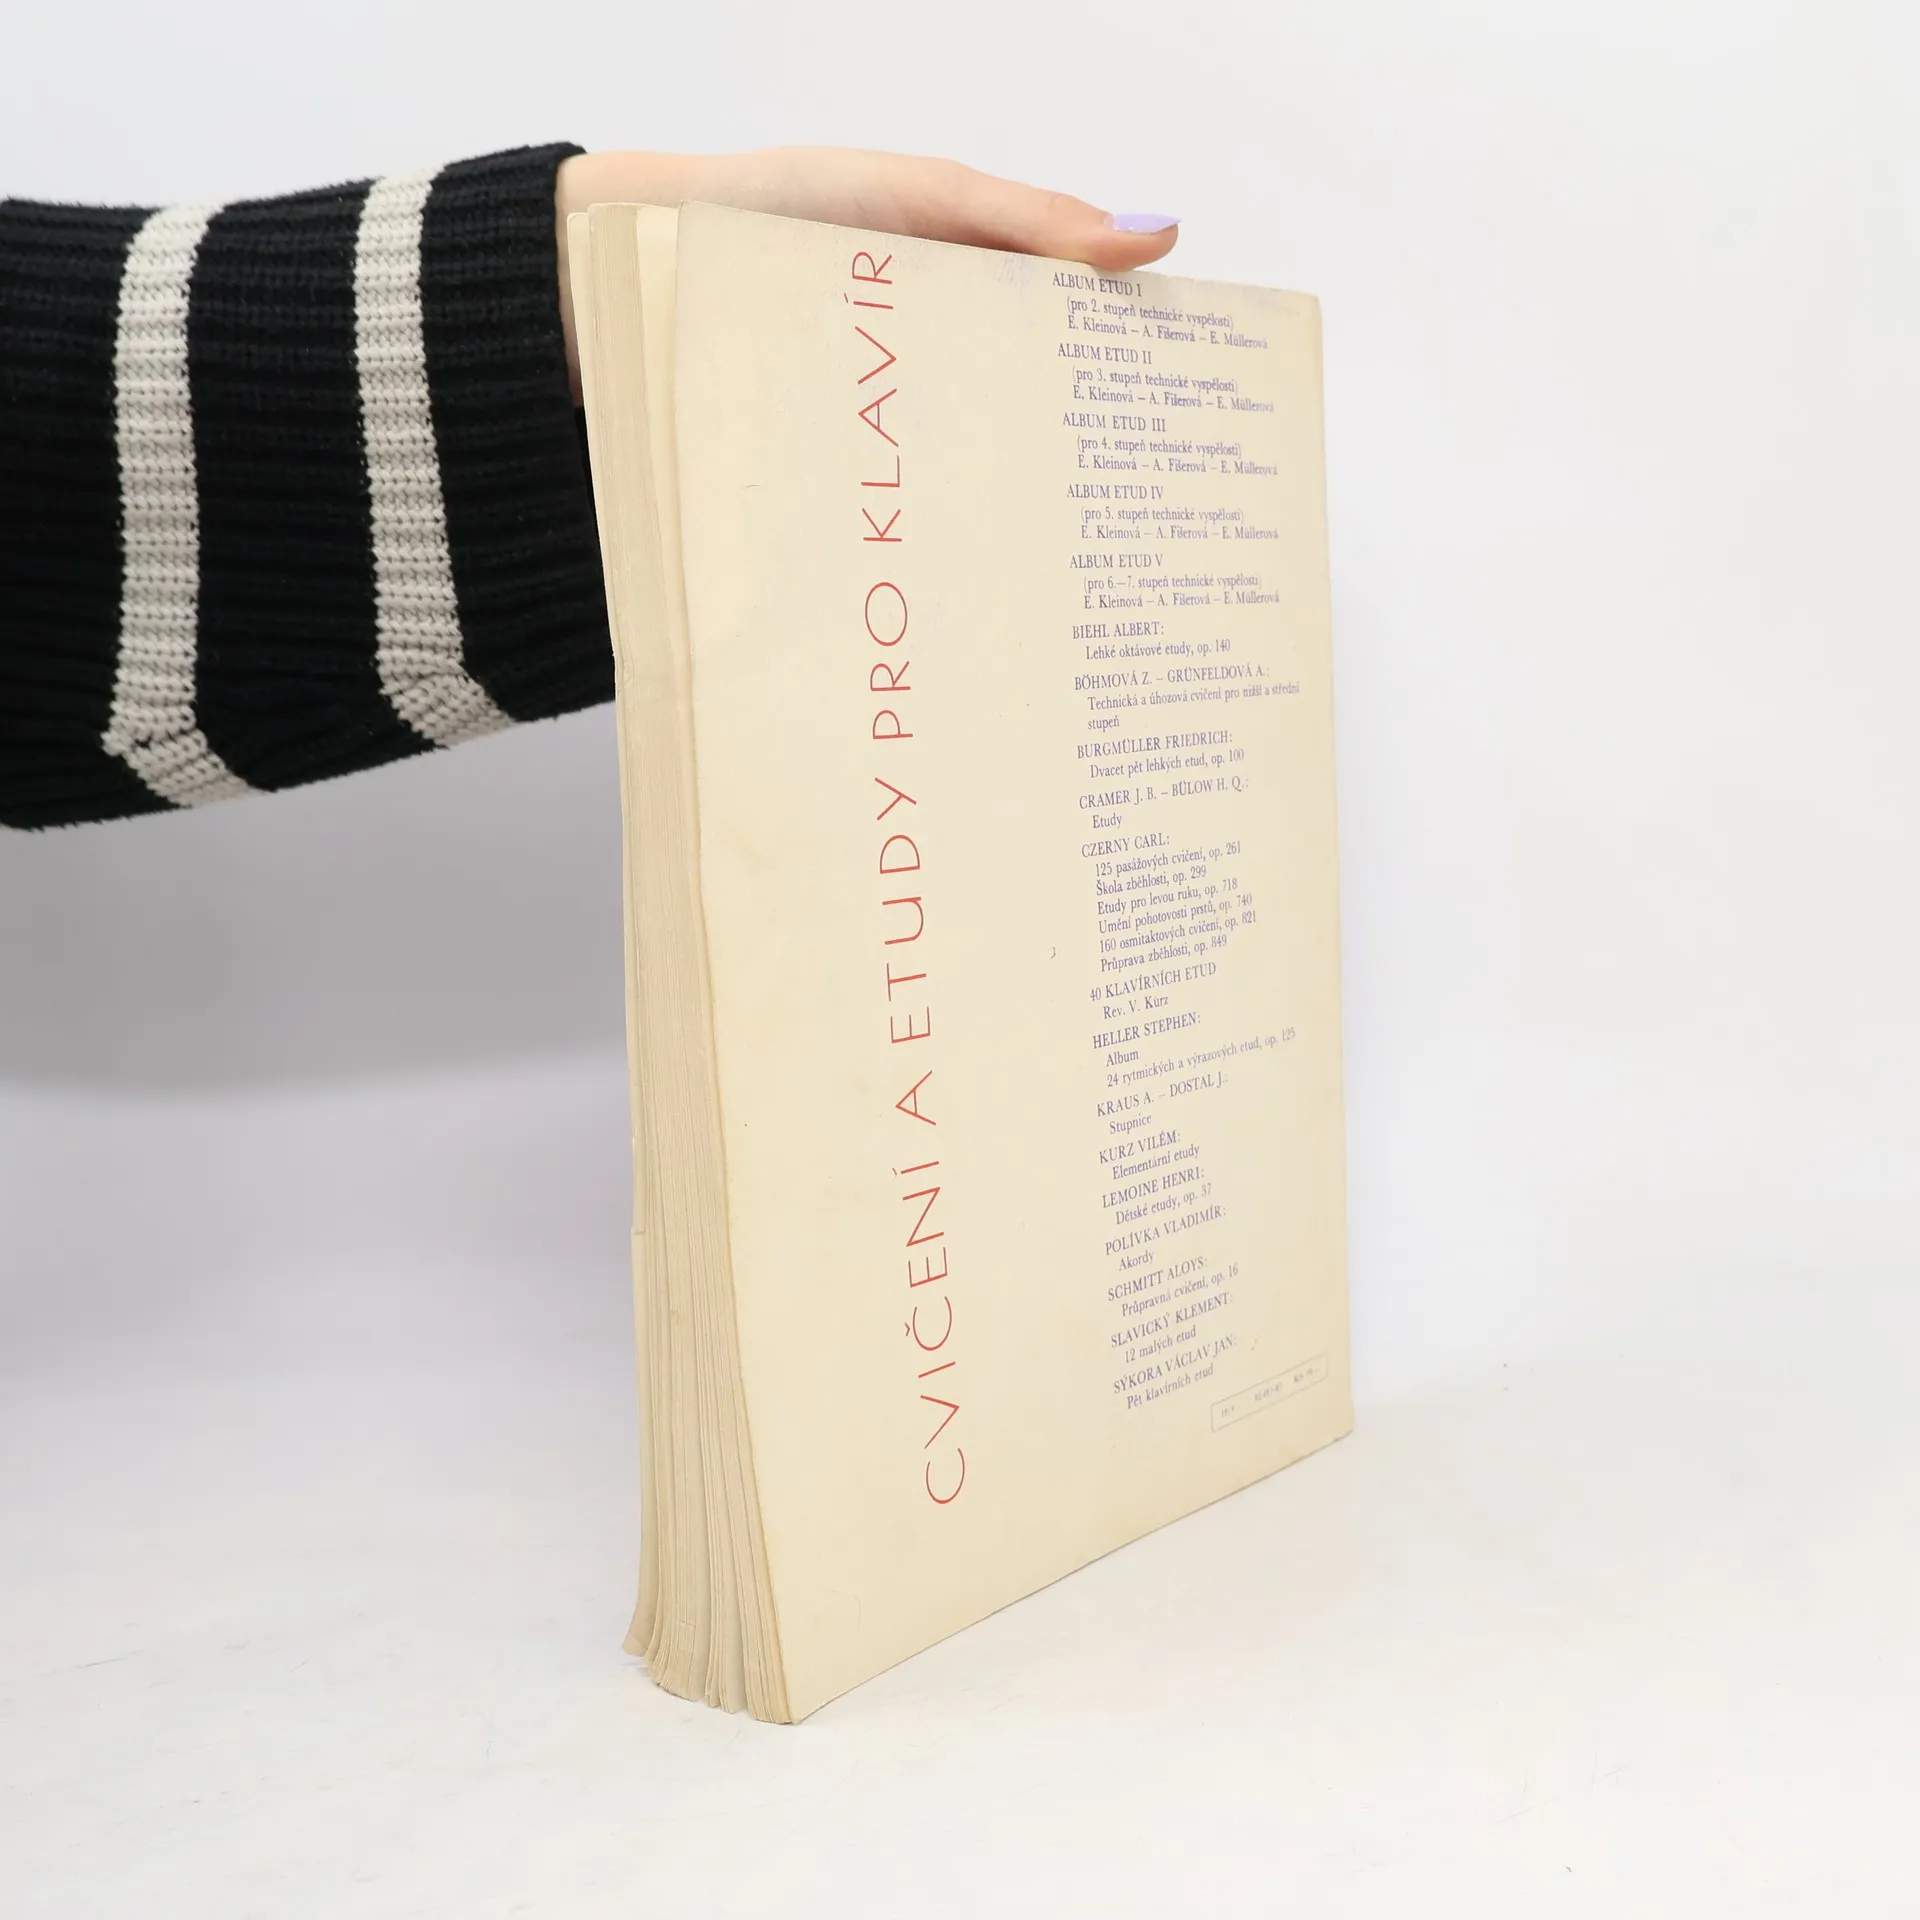 CVIČENÍ A ETUDY PRO KLAVÍR
ALBUM ETUD I
(pro 2. stupeň technické vyspělosti)
E. Kleinová – A. Fišerová – E. Müllerová
ALBUM ETUD II
(pro 3. stupeň technické vyspělosti)
E. Kleinová – A. Fišerová – E. Müllerová
ALBUM ETUD III
(pro 4. stupeň technické vyspělosti)
E. Kleinová – A. Fišerová – E. Müllerová
ALBUM ETUD IV
(pro 5. stupeň technické vyspělosti)
E. Kleinová – A. Fišerová – E. Müllerová
ALBUM ETUD V
(pro 6.–7. stupeň technické vyspělosti)
E. Kleinová – A. Fišerová – E. Müllerová
BIEHL ALBERT:
Lehké oktávové etudy, op. 140
BÖHMOVÁ Z. – GRÜNFELDOVÁ A.:
Technická a úhozová cvičení pro nižší a střední
stupeň
BURGMÜLLER FRIEDRICH:
Dvacet pět lehkých etud, op. 100
CRAMER J. B. – BÜLOW H. Q.:
Etudy
CZERNY CARL:
125 pasážových cvičení, op. 261
Škola zběhlosti, op. 299
Etudy pro levou ruku, op. 718
Umění pohotovosti prstů, op. 740
160 osmitaktových cvičení, op. 821
Průprava zběhlosti, op. 849
40 KLAVÍRNÍCH ETUD
Rev. V. Kurz
HELLER STEPHEN:
Album
24 rytmických a výrazových etud, op. 125
KRAUS A. – DOSTAL J.:
Stupnice
KURZ VILÉM:
Elementární etudy
LEMOINE HENRI:
Dětské etudy, op. 37
POLÍVKA VLADIMÍR:
Akordy
SCHMITT ALOYS:
Průpravná cvičení, op. 16
SLAVICKÝ KLEMENT:
12 malých etud
SÝKORA VÁCLAV JAN:
Pět klavírních etud